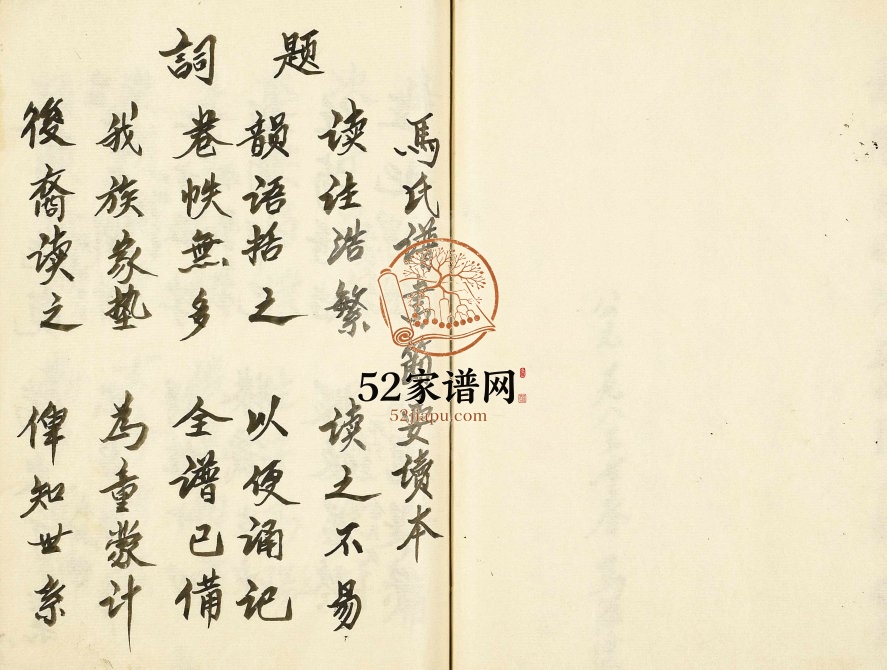 題詞
馬氏譜書簡要讀本
讀注浩繁 讀之不易
韻語括之 以便誦記
卷帙無多 全譜已備
我族家塾 為童蒙計
後裔讀之 俾知世系
52家谱网
52jiapu.com